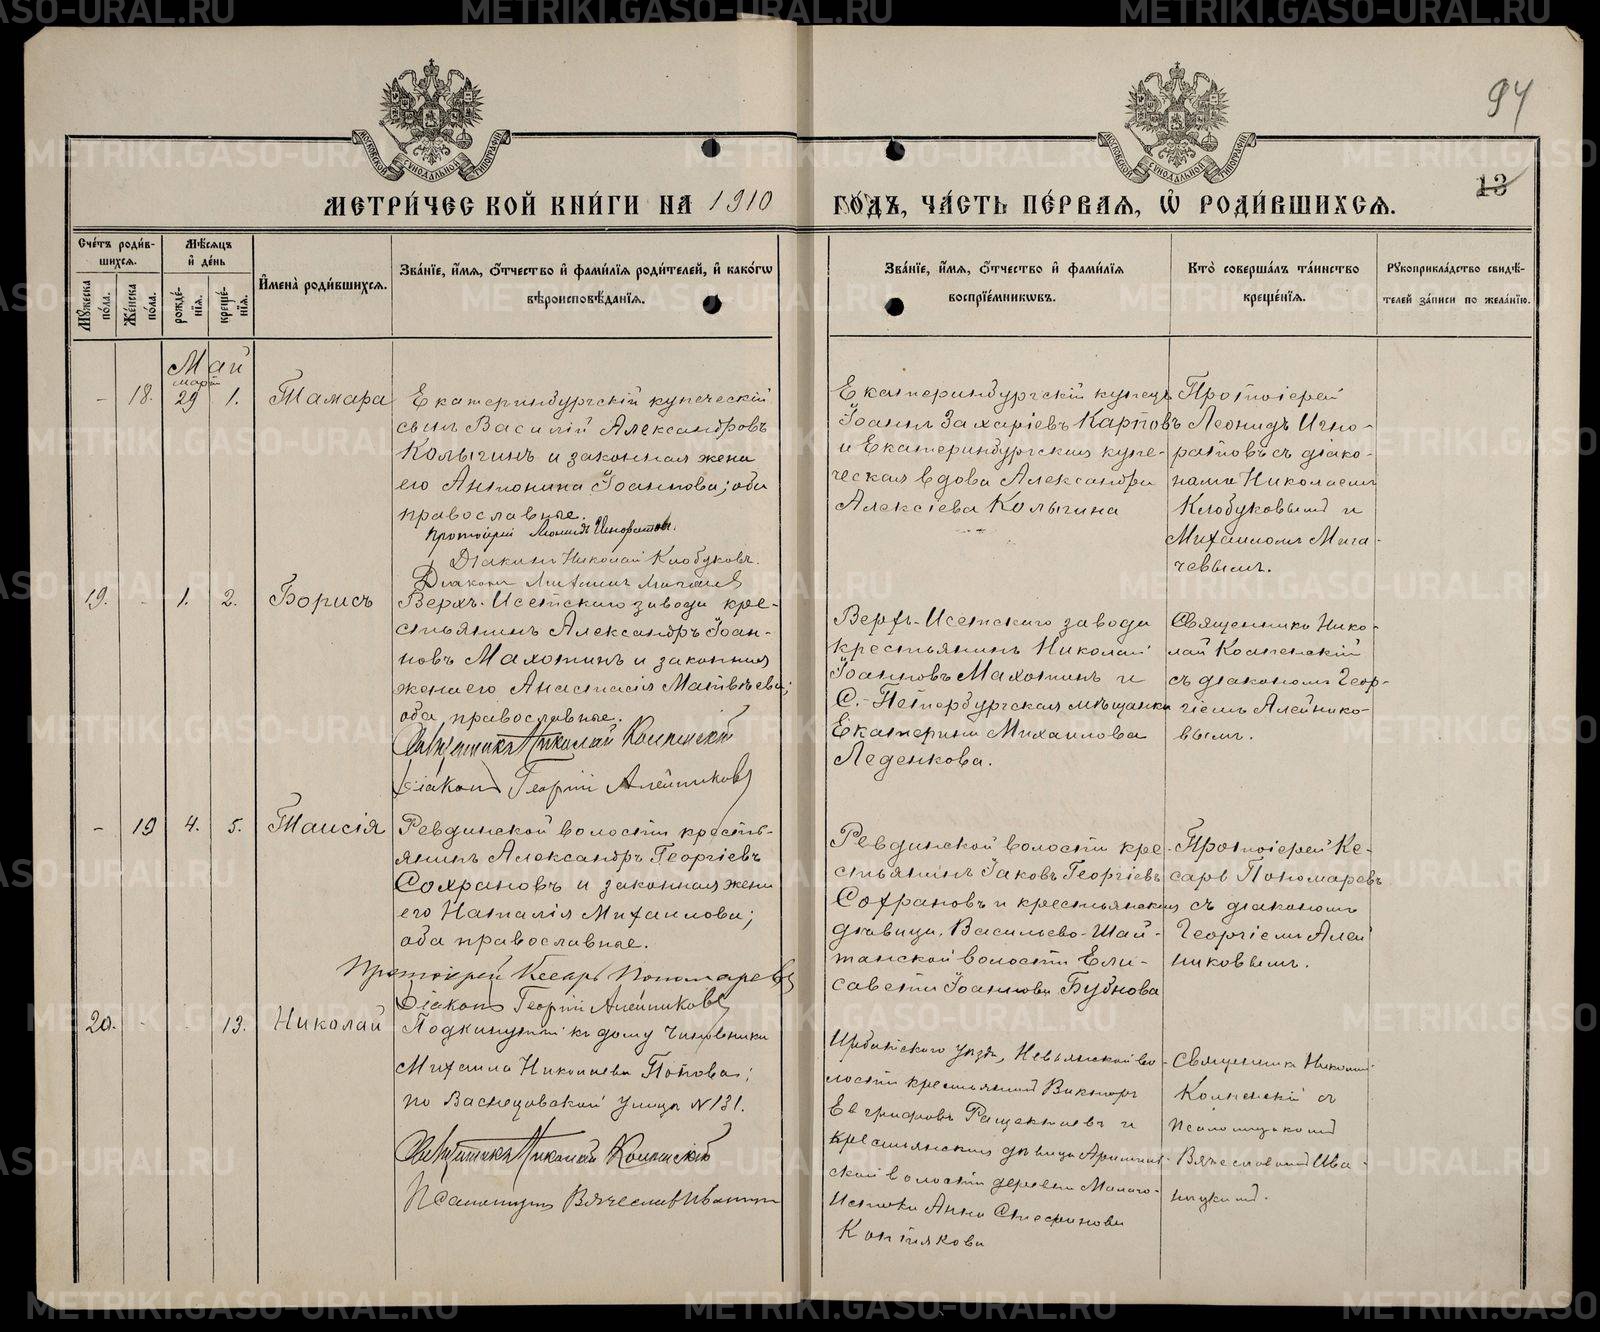 94
13
МЕТРИ́ЧЕСКОЙ КНИ́ГИ НА 1910 ГО́ДЪ, ЧА́СТЬ ПЕ́РВАЯ, Ѡ РОДИ́ВШИХСЯ.
Сче́тъ роди́в-
шихся.
Му́жеска по́ла.
Же́нска по́ла.
Мѣ́сяцъ
и҆ де́нь
рожде́-
нїя.
креще́-
нїя.
И҆мена̀ роди́вшихся.
Зва́нїе, и҆́мя, ѻ҆́тчество и҆ фами́лїя роди́телей, и҆ како́гѡ
вѣроисповѣ́данїя.
Зва́нїе, и҆́мя, ѻ҆́тчество и҆ фами́лїя
воспрїе́мникѡвъ.
Кто̀ соверша́лъ та́инство
креще́нїя.
Рꙋкоприкла́дство свидѣ́-
телей за́писи по жела́нїю.
Май
март
- 18. 29 1. Тамара
Екатеринбургскій купеческій
сынъ Василій Александровъ
Колыгинъ и законная жена
его Антонина Іоаннова; оба
православные.
Протоіерей Леонидъ Игноратовъ.
Діаконъ Николай Клобуковъ.
Діаконъ Михаилъ Мигачевъ
Екатеринбургскій купецъ
Іоаннъ Захаріевъ Карповъ
и Екатеринбургская купе-
ческая вдова Александра
Алексіева Колыгина
Протоіерей
Леонидъ Игно-
ратовъ съ діако-
нами Николаемъ
Клобуковымъ и
Михаиломъ Мига-
чевымъ.
19. - 1. 2. Борисъ
Верхъ-Исетскаго завода кре-
стьянинъ Александръ Іоан-
новъ Махотинъ и законная
жена его Анастасія Матвѣева;
оба православные.
Священникъ Николай Коппенскій
Діаконъ Георгій Алейниковъ
Верхъ-Исетскаго завода
крестьянинъ Николай
Іоанновъ Махотинъ и
С.-Петербургская мѣщанка
Екатерина Михаилова
Леденкова.
Священникъ Нико-
лай
съ діакономъ Геор-
гіемъ Алейнико-
вымъ.
- 19 4. 5. Таисія
Ревдинской волости кресть-
янинъ Александръ Георгіевъ
Сохрановъ и законная жена
его Наталія Михаилова;
оба православные.
Протоіерей Кесарь Пономаревъ
Діаконъ Георгій Алейниковъ
Ревдинской волости кре-
стьянинъ Іаковъ Георгіевъ
Сохрановъ и крестьянская
дѣвица, Васильево-Шай-
танской волости Ели-
савета Іоаннова Бубнова
Протоіерей Ке-
сарь Пономаревъ
съ діакономъ
Георгіемъ Алей
никовымъ.
20. - - 13. Николай
Подкинутый къ дому чиновника
Михаила Николаева Попова;
по Васнецовской улицѣ №131.
Священникъ Николай
Псаломщикъ Вячеславъ
Ирбитскаго уѣзда, Невьянской во-
лости крестьянинъ Викторъ
Евграфовъ и
крестьянская дѣвица
ской волости деревни Малаго-
Истока Анна Стефанова
Контякова
Священникъ Николай
съ
псаломщикомъ
Вячеславомъ Ива-